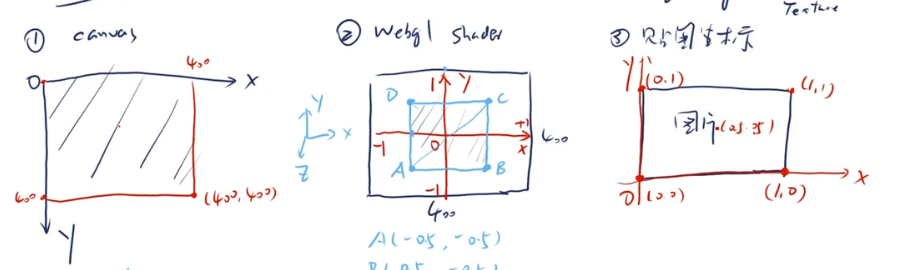 Texture
① canvas
400
O
X
400
(400, 400)
Y
② Webgl shader
1
Y
D
C
-1
O
+1
X
400
A
B
-1
400
Y
X
Z
A(-0.5, -0.5)
③ 贴图坐标
Y
(0.1)
(1,1)
图片
(0.5, 0.5)
O
(0.0)
(1,0)
X